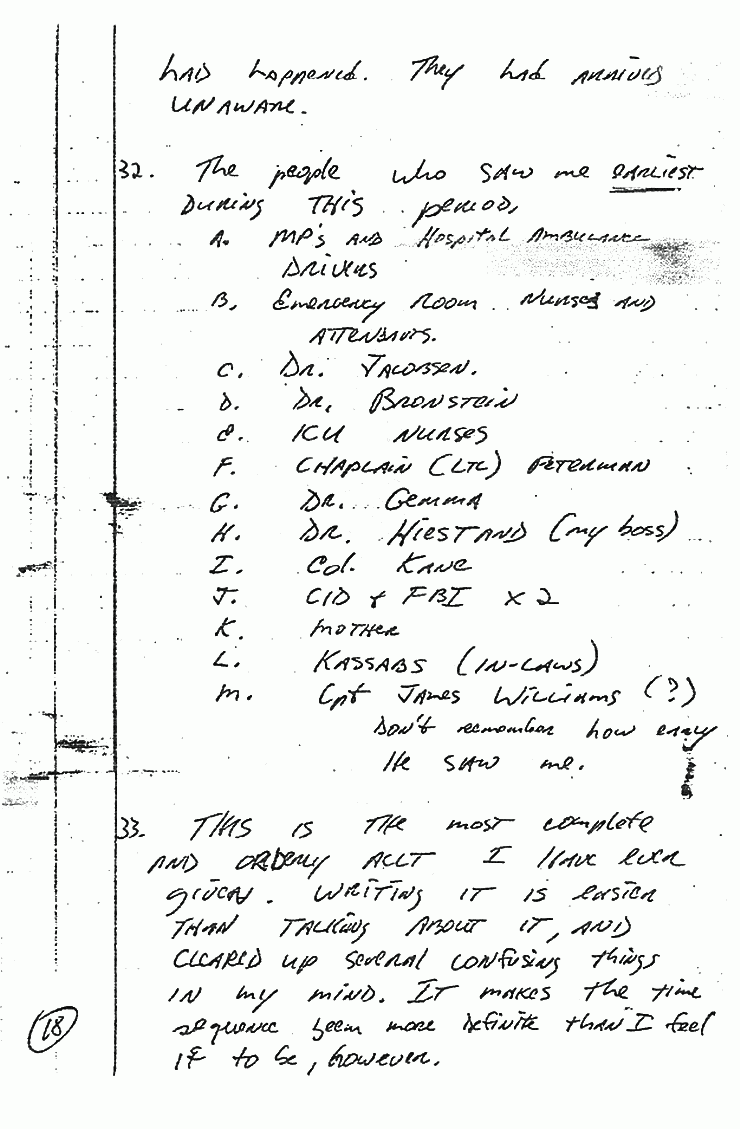 had happened. They had arrived
unaware.
32. The people who saw me earliest
during this period,
A. MP's and Hospital Ambulance
Drivers
B. Emergency Room Nurses and
Attendants.
C. Dr. Jacobsen.
D. Dr. Bronstein
E. ICU Nurses
F. Chaplain (LTC) Peterman
G. Dr. Gemma
H. Dr. Hiestand (my boss)
I. Col. Kane
J. CID & FBI x 2
K. Mother
L. Kassabs (in-laws)
M. Cpt James Williams (?)
Don't remember how early
He saw me.
33. This is the most complete
and orderly acct I have ever
given. Writing it is easier
than talking about it, and
cleared up several confusing things
in my mind. It makes the time
sequence seem more definite than I feel
it to be, however.
18